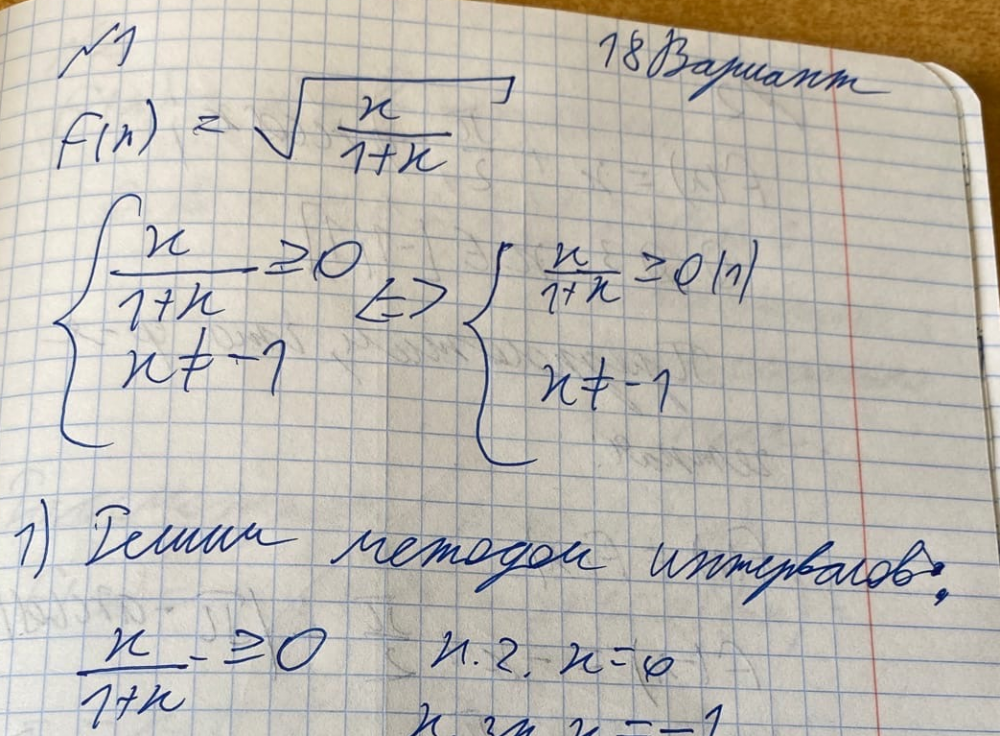 №1
18 Вариант
f(x) = √(x/(1+x))
{ x/(1+x) ≥ 0 <=> { x/(1+x) ≥ 0 (1)
x ≠ -1 x ≠ -1
1) Решим методом интервалов:
x/(1+x) ≥ 0 н.г. x=0
н. зн. x = -1